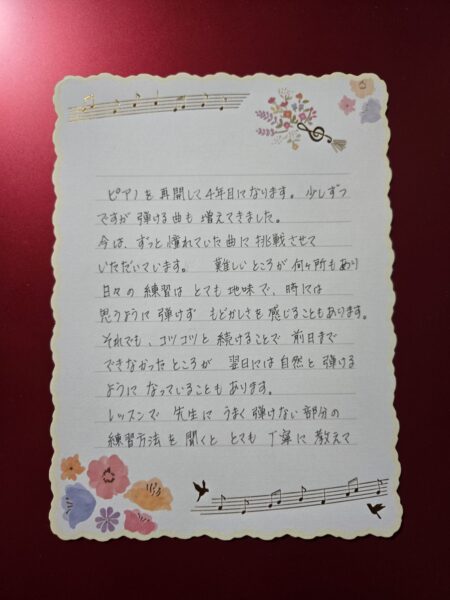 ピアノを再開して4年目になります。少しずつ
ですが弾ける曲も増えてきました。
今は、ずっと憧れていた曲に挑戦させて
いただいています。 難しいところが何ヶ所もあり
日々の練習はとても地味で、時には
思うように弾けずもどかしさを感じることもあります。
それでも、コツコツと続けることで前日まで
できなかったところが翌日には自然と弾ける
ようになっていることもあります。
レッスンで先生にうまく弾けない部分の
練習方法を聞くととても丁寧に教えて